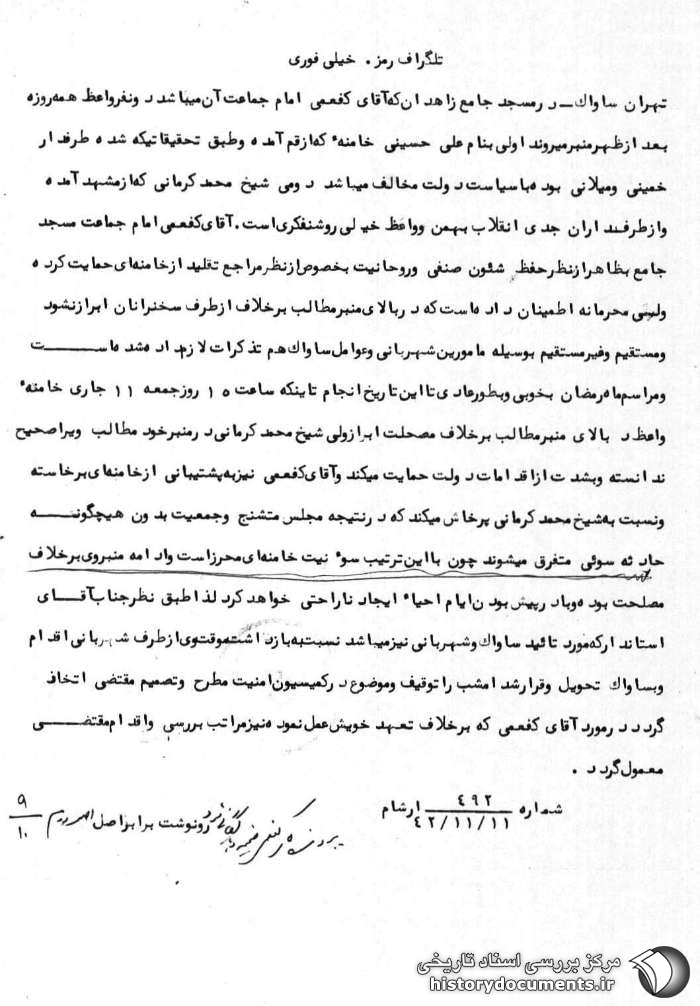 تلگراف رمز . خیلی فوری
تهران ساواك ـ درمسجد جامع زاهدان که آقای کفعمی امام جماعت آن میباشد دونفر واعظ همه روزه
بعد از ظهر منبر میروند اولی بنام علی حسینی خامنهٔ که از قم آمده وطبق تحقیقاتیکه شده طرفدار
خمینی ومیلانی بوده باسیاست دولت مخالف میباشد دومی شیخ محمد کرمانی که از مشهد آمده
واز طرفداران جدی انقلاب بهمن وواعظ خیلی روشنفکری است . آقای کفعمی امام جماعت مسجد
جامع بظاهر از نظر حفظ شئون صنفی وروحانیت بخصوص از نظر مراجع تقلید از خامنه‌ای حمایت کرده
ولیکن محرمانه اطمینان داده است که در بالای منبر مطالب برخلاف از طرف سخنرانان ابراز نشود
ومستقیم وغیرمستقیم بوسیله مامورین شهربانی وعوامل ساواك هم تذکرات لازم داده شده است
ومراسم ماه رمضان بخوبی وبطور عادی تا این تاریخ انجام تا اینکه ساعت ۱۵ روز جمعه ۱۱ جاری خامنهٔ
واعظ در بالای منبر مطالب برخلاف مصلحت ابراز ولی شیخ محمد کرمانی در منبر خود مطالب ویرا صحیح
ندانسته وبشدت از اقدامات دولت حمایت میکند وآقای کفعمی نیز به پشتیبانی از خامنه‌ای برخاسته
ونسبت به شیخ محمد کرمانی پرخاش میکند که در نتیجه مجلس متشنج وجمعیت بدون هیچگونه
حادثه سوئی متفرق میشوند چون با این ترتیب سوء نیت خامنه‌ای محرز است وادامه منبر وی برخلاف
مصلحت بوده وبا در پیش بودن ایام احیاء ایجاد ناراحتی خواهد کرد لذا طبق نظر جناب آقای
استاندار که مورد تائید ساواك وشهربانی نیز میباشد نسبت به بازداشت موقت وی از طرف شهربانی اقدام
وبساواك تحویل وقرار شد امشب را توقیف وموضوع در کمیسیون امنیت مطرح وتصمیم مقتضی اتخاذ
گردد در مورد آقای کفعمی که برخلاف تعهد خویش عمل نموده نیز مراتب بررسی واقدام مقتضی
معمول گردد .
شماره ۴۹۲ ارشام
۴۲/۱۱/۱۱
رونوشت برابر اصل است
۹
۱۰
مرکز بررسی اسناد تاریخی
historydocuments.ir